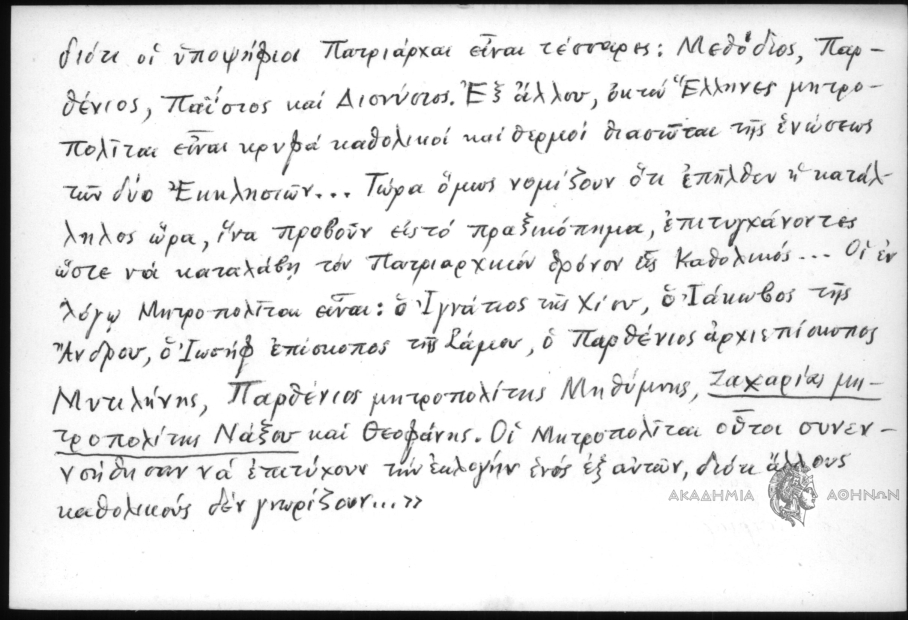 διότι οἱ ὑποψήφιοι Πατριάρχαι εἶναι τέσσαρες: Μεθόδιος, Παρ-
θένιος, Παΐσιος καί Διονύσιος. Ἐξ ἄλλου, ὀκτώ Ἕλληνες μητρο-
πολῖται εἶναι κρυφά καθολικοί καί θερμοί θιασῶται τῆς ἑνώσεως
τῶν δύο Ἐκκλησιῶν... Τώρα ὅμως νομίζουν ὅτι ἐπῆλθεν ἡ κατάλ-
ληλος ὥρα, ἵνα προβοῦν εἰς τό πραξικόπημα, ἐπιτυγχάνοντες
ὥστε νά καταλάβῃ τόν Πατριαρχικόν θρόνον εἷς Καθολικός... Οἱ ἐν
λόγῳ Μητροπολῖται εἶναι: ὁ Ἰγνάτιος τῆς Χίου, ὁ Ἰάκωβος τῆς
Ἄνδρου, ὁ Ἰωσήφ ἐπίσκοπος τῆς Σάμου, ὁ Παρθένιος ἀρχιεπίσκοπος
Μυτιλήνης, Παρθένιος μητροπολίτης Μηθύμνης, Ζαχαρίας μη-
τροπολίτης Νάξου καί Θεοφάνης. Οἱ Μητροπολῖται οὗτοι συνεν-
νοήθησαν νά ἐπιτύχουν τήν ἐκλογήν ἑνός ἐξ αὐτῶν, διότι ἄλλους
καθολικούς δέν γνωρίζουν...»
ΑΚΑΔΗΜΙΑ ΑΘΗΝΩΝ